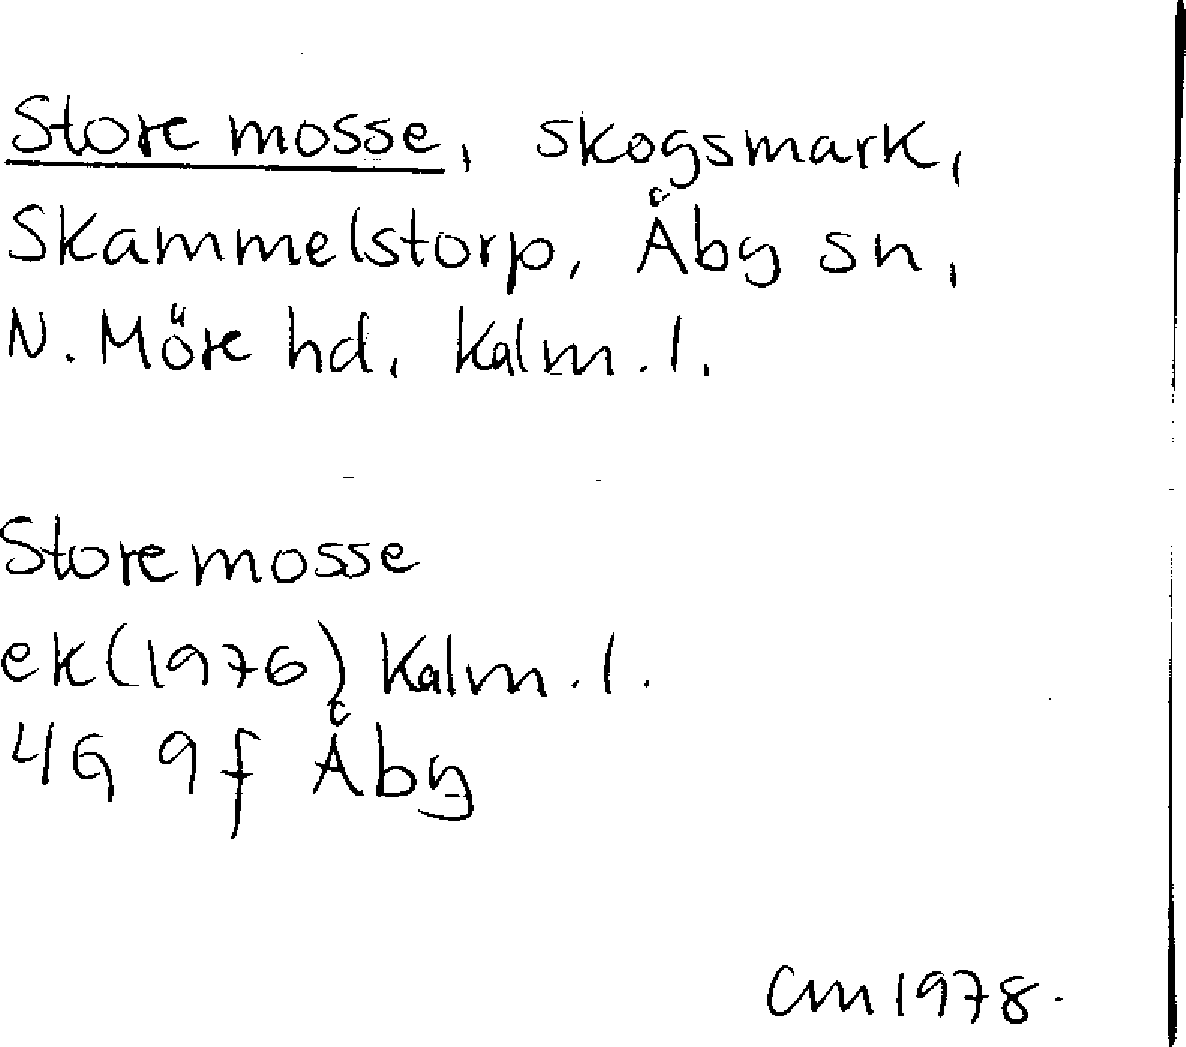 Store mosse, skogsmark,
Skammelstorp, Åby sn,
N. Möre hd, Kalm. l.
Storemosse
ek (1976) Kalm. l.
4G 9f Åby
Cm 1978.